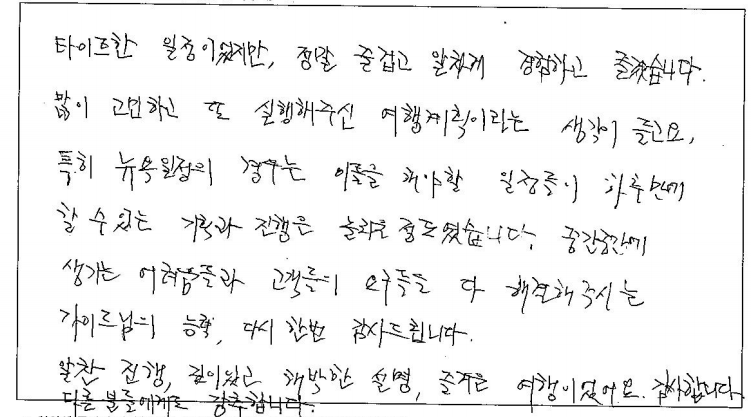 타이트한 일정이었지만, 정말 즐겁고 알차게 경험하고 즐겼습니다.
많이 고민하고 또 실행해주신 여행계획이라는 생각이 들고요,
특히 뉴욕일정의 경우는 이틀을 해야할 일정들이 하루만에
할 수 있는 기획과 진행은 놀라울 정도였습니다. 중간중간에
생기는 어려움들과 고객들의 요구들을 다 해결해주시는
가이드님의 능력, 다시 한번 감사드립니다.
알찬 진행, 깊이있고 해박한 설명, 즐거운 여행이었어요. 감사합니다
다른 분들에게도 강추합니다.